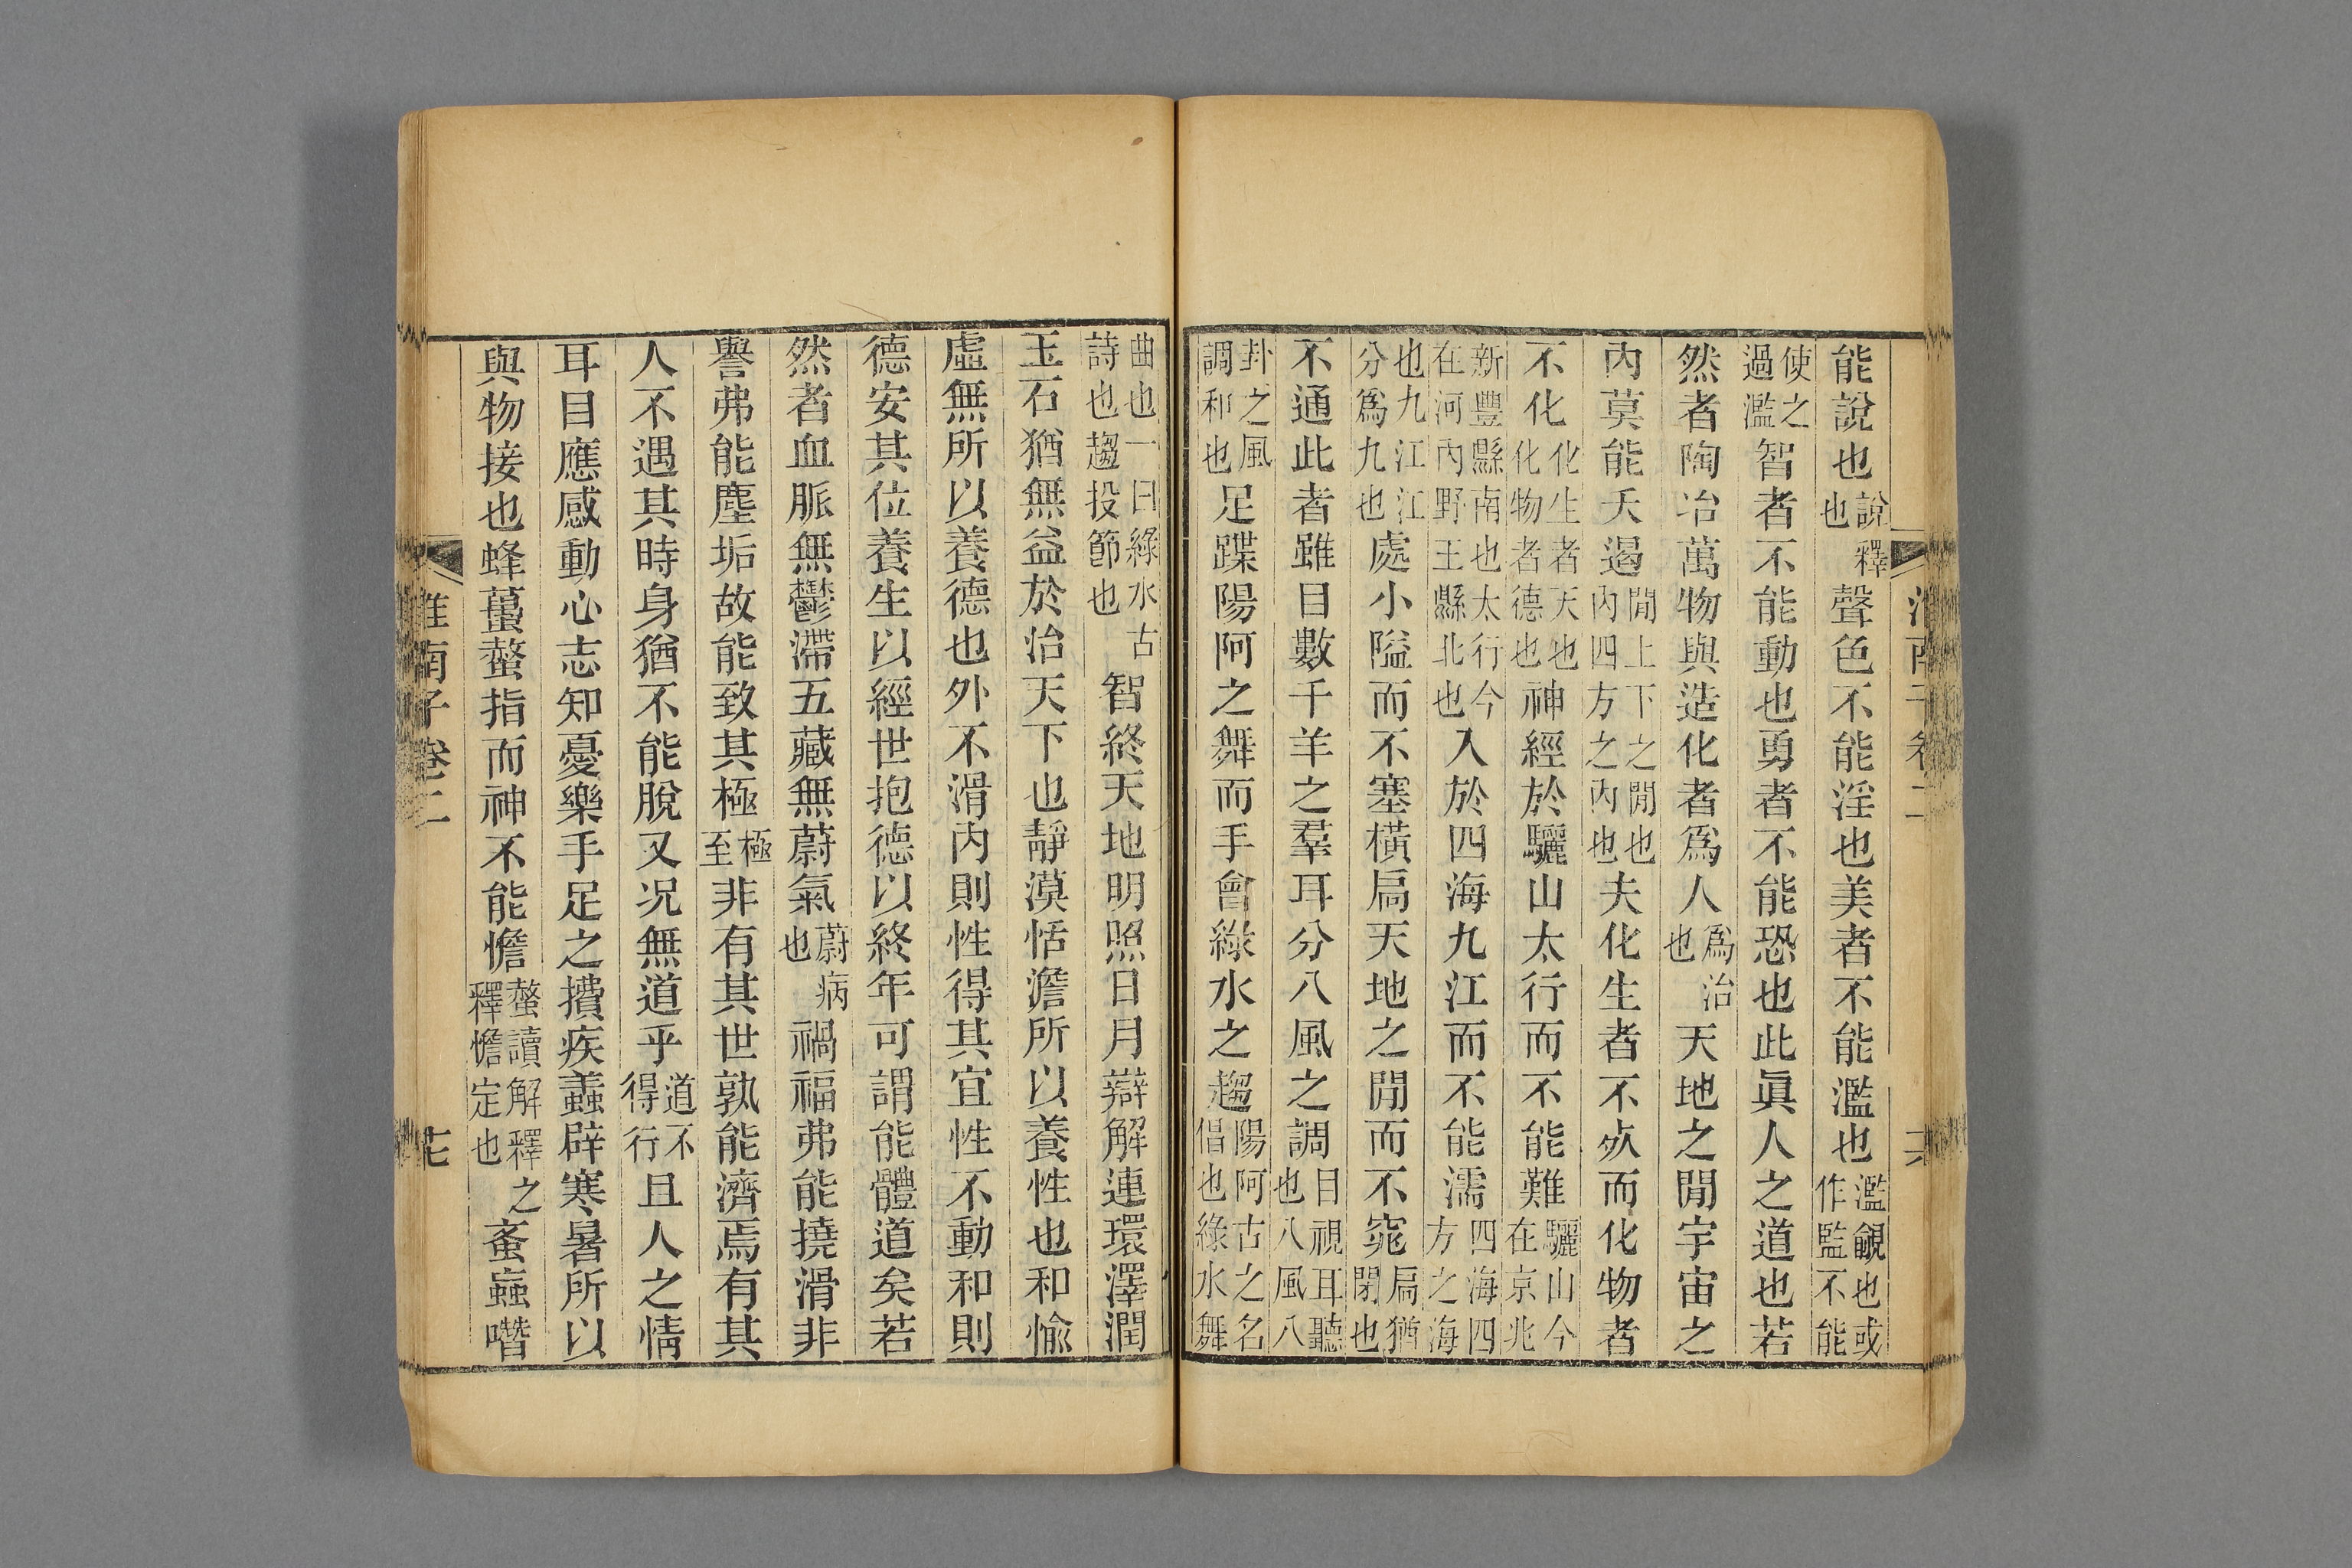 能說也說釋也聲色不能淫也美者不能濫也濫也或作監不能
使之過濫智者不能動也勇者不能恐也此眞人之道也若
然者陶冶萬物與造化者爲人爲治也天地之閒宇宙之
內莫能夭遏閒上下之閒也內四方之內也夫化生者不死而化物者
不化化生者天也化物者德也神經於驪山太行而不能難驪山今在京兆
新豐縣南也太行今在河內野王縣北也入於四海九江而不能濡四海四方之海
也九江江分爲九也處小隘而不塞橫扃天地之閒而不窕扃猶閉也
不通此者雖目數千羊之羣耳分八風之調目視耳聽也八風八
卦之風調和也足蹀陽阿之舞而手會綠水之趨陽阿古之名倡也綠水舞
曲也一曰綠水古詩也趨投節也智終天地明照日月辯解連環澤潤
玉石猶無益於治天下也靜漠恬澹所以養性也和愉
虛無所以養德也外不滑內則性得其宜性不動和則
德安其位養生以經世抱德以終年可謂能體道矣若
然者血脈無鬱滯五藏無蔚氣蔚病也禍福弗能撓滑非
譽弗能塵垢故能致其極極至非有其世孰能濟焉有其
人不遇其時身猶不能脫又況無道乎道不得行且人之情
耳目應感動心志知憂樂手足之攢疾蠚辟寒暑所以
與物接也蜂蠆螫指而神不能憺螫讀解釋之釋憺定也蚉蝱噆
淮南子卷二